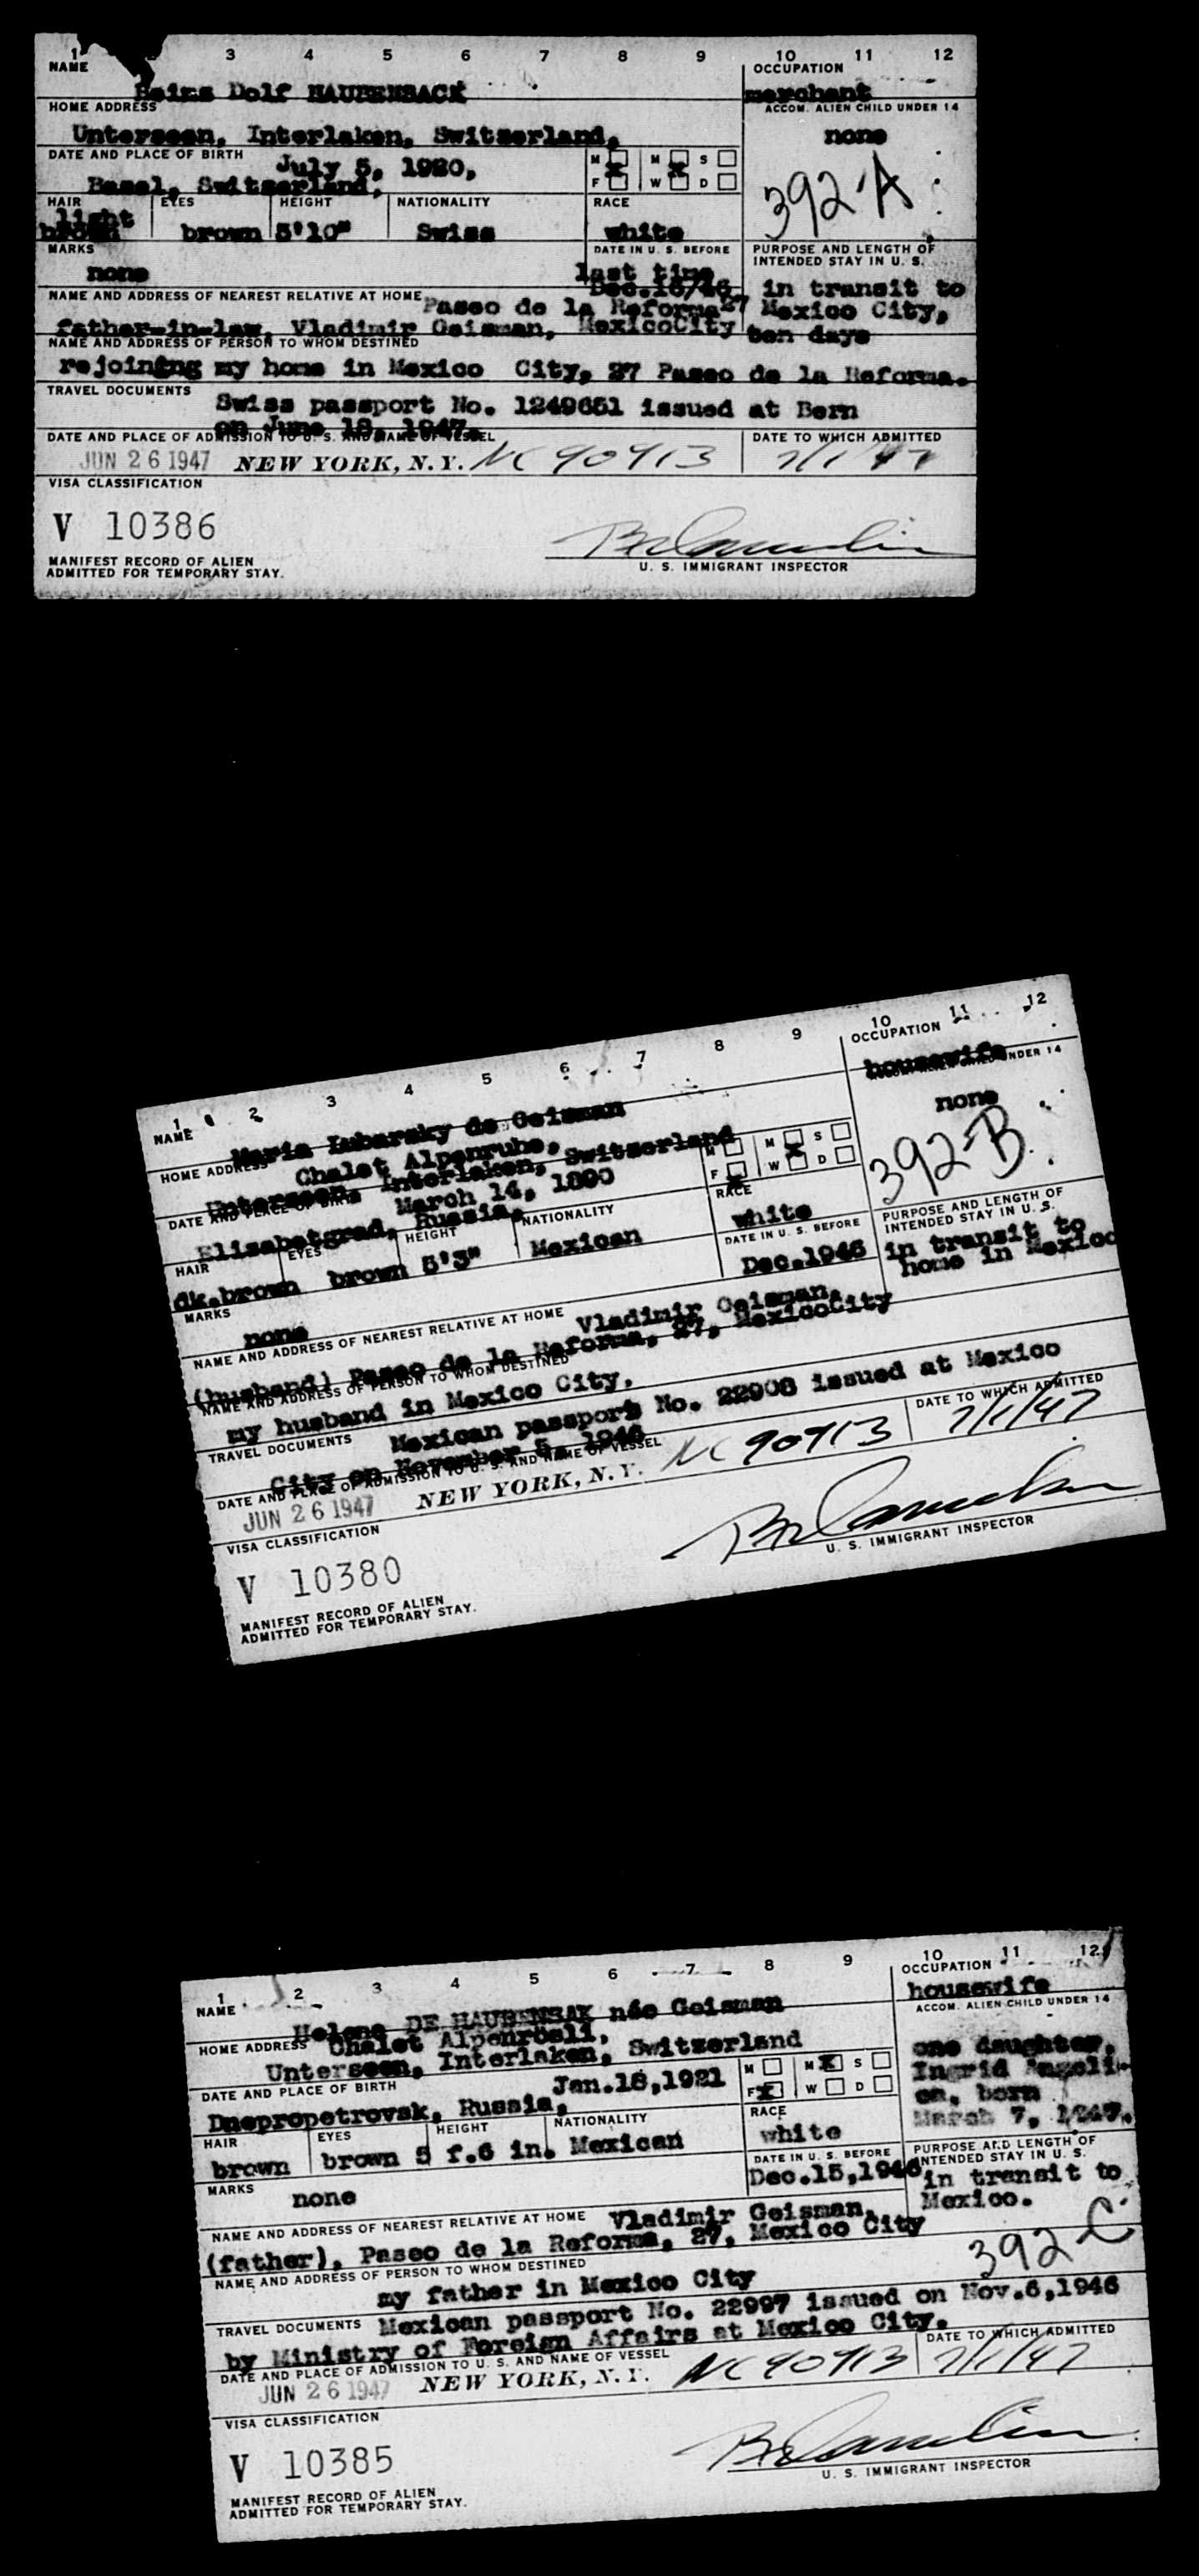 1 3 4 5 6 7 8 9 10 11 12
NAME
OCCUPATION
Dolf HAURENSACK
merchant
HOME ADDRESS
ACCOM. ALIEN CHILD UNDER 14
Unterseen, Interlaken, Switzerland,
none
DATE AND PLACE OF BIRTH
July 5, 1920,
M M S
Basel, Switzerland,
F W D
392 A
HAIR EYES HEIGHT NATIONALITY RACE
light
brown brown 5'10" Swiss white
MARKS
DATE IN U. S. BEFORE
PURPOSE AND LENGTH OF
INTENDED STAY IN U. S.
none
last time
Dec.16/46
in transit to
NAME AND ADDRESS OF NEAREST RELATIVE AT HOME
Paseo de la Reforma 27
Mexico City,
father-in-law, Vladimir Geisman, MexicoCity
ten days
NAME AND ADDRESS OF PERSON TO WHOM DESTINED
rejoining my home in Mexico City, 27 Paseo de la Reforma.
TRAVEL DOCUMENTS
Swiss passport No. 1249651 issued at Bern
on June 18, 1947.
DATE AND PLACE OF ADMISSION TO U. S. AND NAME OF VESSEL
DATE TO WHICH ADMITTED
JUN 26 1947 NEW YORK, N.Y. NC 90913 7/1/47
VISA CLASSIFICATION
V 10386
MANIFEST RECORD OF ALIEN
ADMITTED FOR TEMPORARY STAY.
U. S. IMMIGRANT INSPECTOR
1 2 3 4 5 6 7 8 9 10 11 12
NAME
OCCUPATION
Maria Lubarsky de Geisman
housewife
UNDER 14
HOME ADDRESS
Chalet Alpenruhe,
none
Unterseen, Interlaken, Switzerland
M M S
DATE AND PLACE OF BIRTH
March 14, 1890
F W D
392-B
Elisabetgrad, Russia,
HAIR EYES HEIGHT NATIONALITY RACE
dk.brown brown 5'3" Mexican white
DATE IN U. S. BEFORE
PURPOSE AND LENGTH OF
INTENDED STAY IN U. S.
Dec.1946
in transit to
home in Mexico
MARKS
none
NAME AND ADDRESS OF NEAREST RELATIVE AT HOME
Vladimir Geisman,
(husband) Paseo de la Reforma, 27, MexicoCity
NAME AND ADDRESS OF PERSON TO WHOM DESTINED
my husband in Mexico City.
TRAVEL DOCUMENTS
Mexican passport No. 22908 issued at Mexico
City on November 5, 1946
DATE AND PLACE OF ADMISSION TO U. S. AND NAME OF VESSEL
DATE TO WHICH ADMITTED
JUN 26 1947 NEW YORK, N.Y. NC 90913 7/1/47
VISA CLASSIFICATION
V 10380
MANIFEST RECORD OF ALIEN
ADMITTED FOR TEMPORARY STAY.
U. S. IMMIGRANT INSPECTOR
1 2 3 4 5 6 7 8 9 10 11 12
NAME
OCCUPATION
Helene DE HAURENSAK née Geisman
housewife
HOME ADDRESS
ACCOM. ALIEN CHILD UNDER 14
Chalet Alpenrösli,
Unterseen, Interlaken, Switzerland
one daughter,
Ingrid Angeli-
ca, born
March 7, 1947.
DATE AND PLACE OF BIRTH
Jan.18,1921
M M S
F W D
Dnepropetrovsk, Russia,
HAIR EYES HEIGHT NATIONALITY RACE
brown brown 5 f.6 in. Mexican white
MARKS
DATE IN U. S. BEFORE
PURPOSE AND LENGTH OF
INTENDED STAY IN U. S.
none
Dec.15,1946
in transit to
Mexico.
NAME AND ADDRESS OF NEAREST RELATIVE AT HOME
Vladimir Geisman,
(father), Paseo de la Reforma, 27, Mexico City
392 C
NAME AND ADDRESS OF PERSON TO WHOM DESTINED
my father in Mexico City
TRAVEL DOCUMENTS
Mexican passport No. 22997 issued on Nov.6,1946
by Ministry of Foreign Affairs at Mexico City.
DATE AND PLACE OF ADMISSION TO U. S. AND NAME OF VESSEL
DATE TO WHICH ADMITTED
JUN 26 1947 NEW YORK, N.Y. NC 90913 7/1/47
VISA CLASSIFICATION
V 10385
MANIFEST RECORD OF ALIEN
ADMITTED FOR TEMPORARY STAY.
U. S. IMMIGRANT INSPECTOR